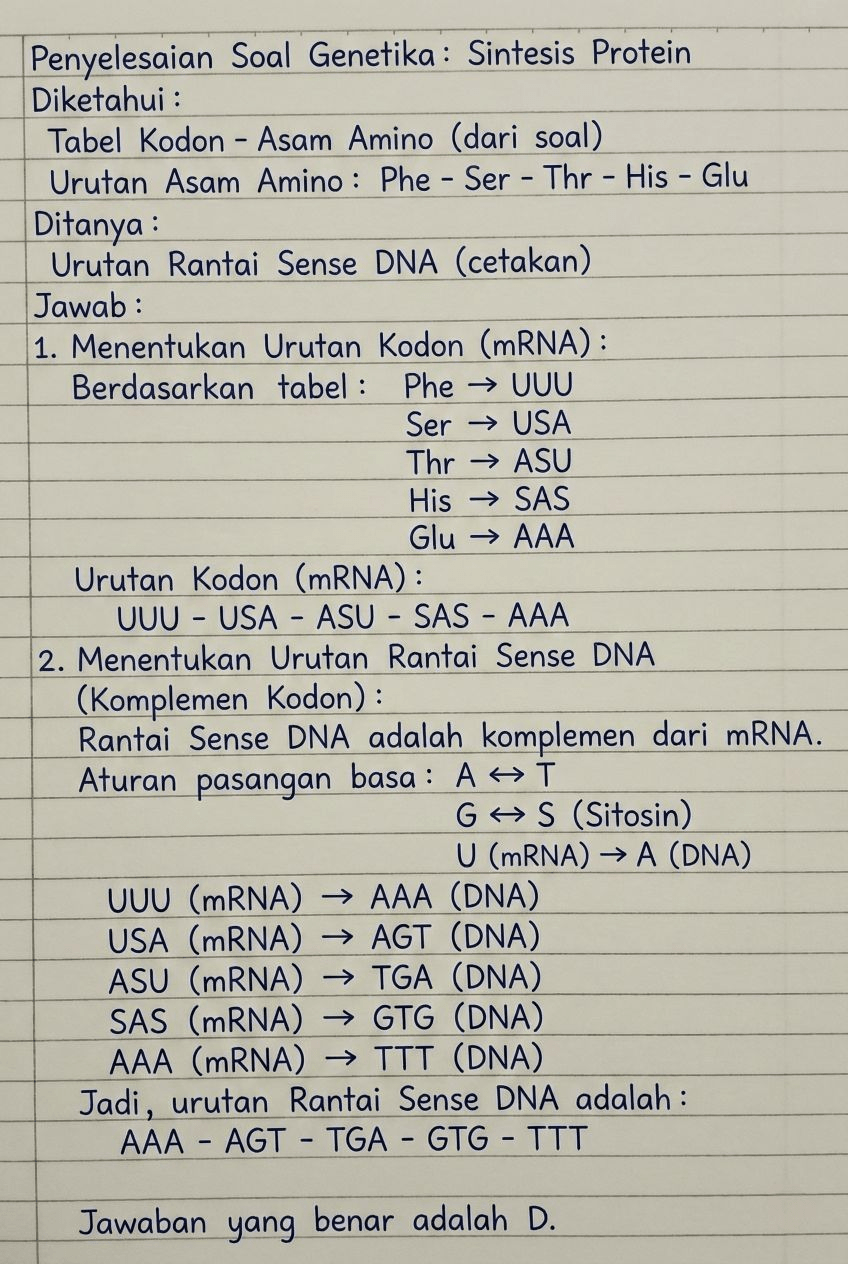 Penyelesaian Soal Genetika: Sintesis Protein
Diketahui:
Tabel Kodon - Asam Amino (dari soal)
Urutan Asam Amino: Phe - Ser - Thr - His - Glu
Ditanya:
Urutan Rantai Sense DNA (cetakan)
Jawab:
1. Menentukan Urutan Kodon (mRNA):
Berdasarkan tabel: Phe → UUU
Ser → USA
Thr → ASU
His → SAS
Glu → AAA
Urutan Kodon (mRNA):
UUU - USA - ASU - SAS - AAA
2. Menentukan Urutan Rantai Sense DNA
(Komplemen Kodon):
Rantai Sense DNA adalah komplemen dari mRNA.
Aturan pasangan basa: A ↔ T
G ↔ S (Sitosin)
U (mRNA) → A (DNA)
UUU (mRNA) → AAA (DNA)
USA (mRNA) → AGT (DNA)
ASU (mRNA) → TGA (DNA)
SAS (mRNA) → GTG (DNA)
AAA (mRNA) → TTT (DNA)
Jadi, urutan Rantai Sense DNA adalah:
AAA - AGT - TGA - GTG - TTT
Jawaban yang benar adalah D.